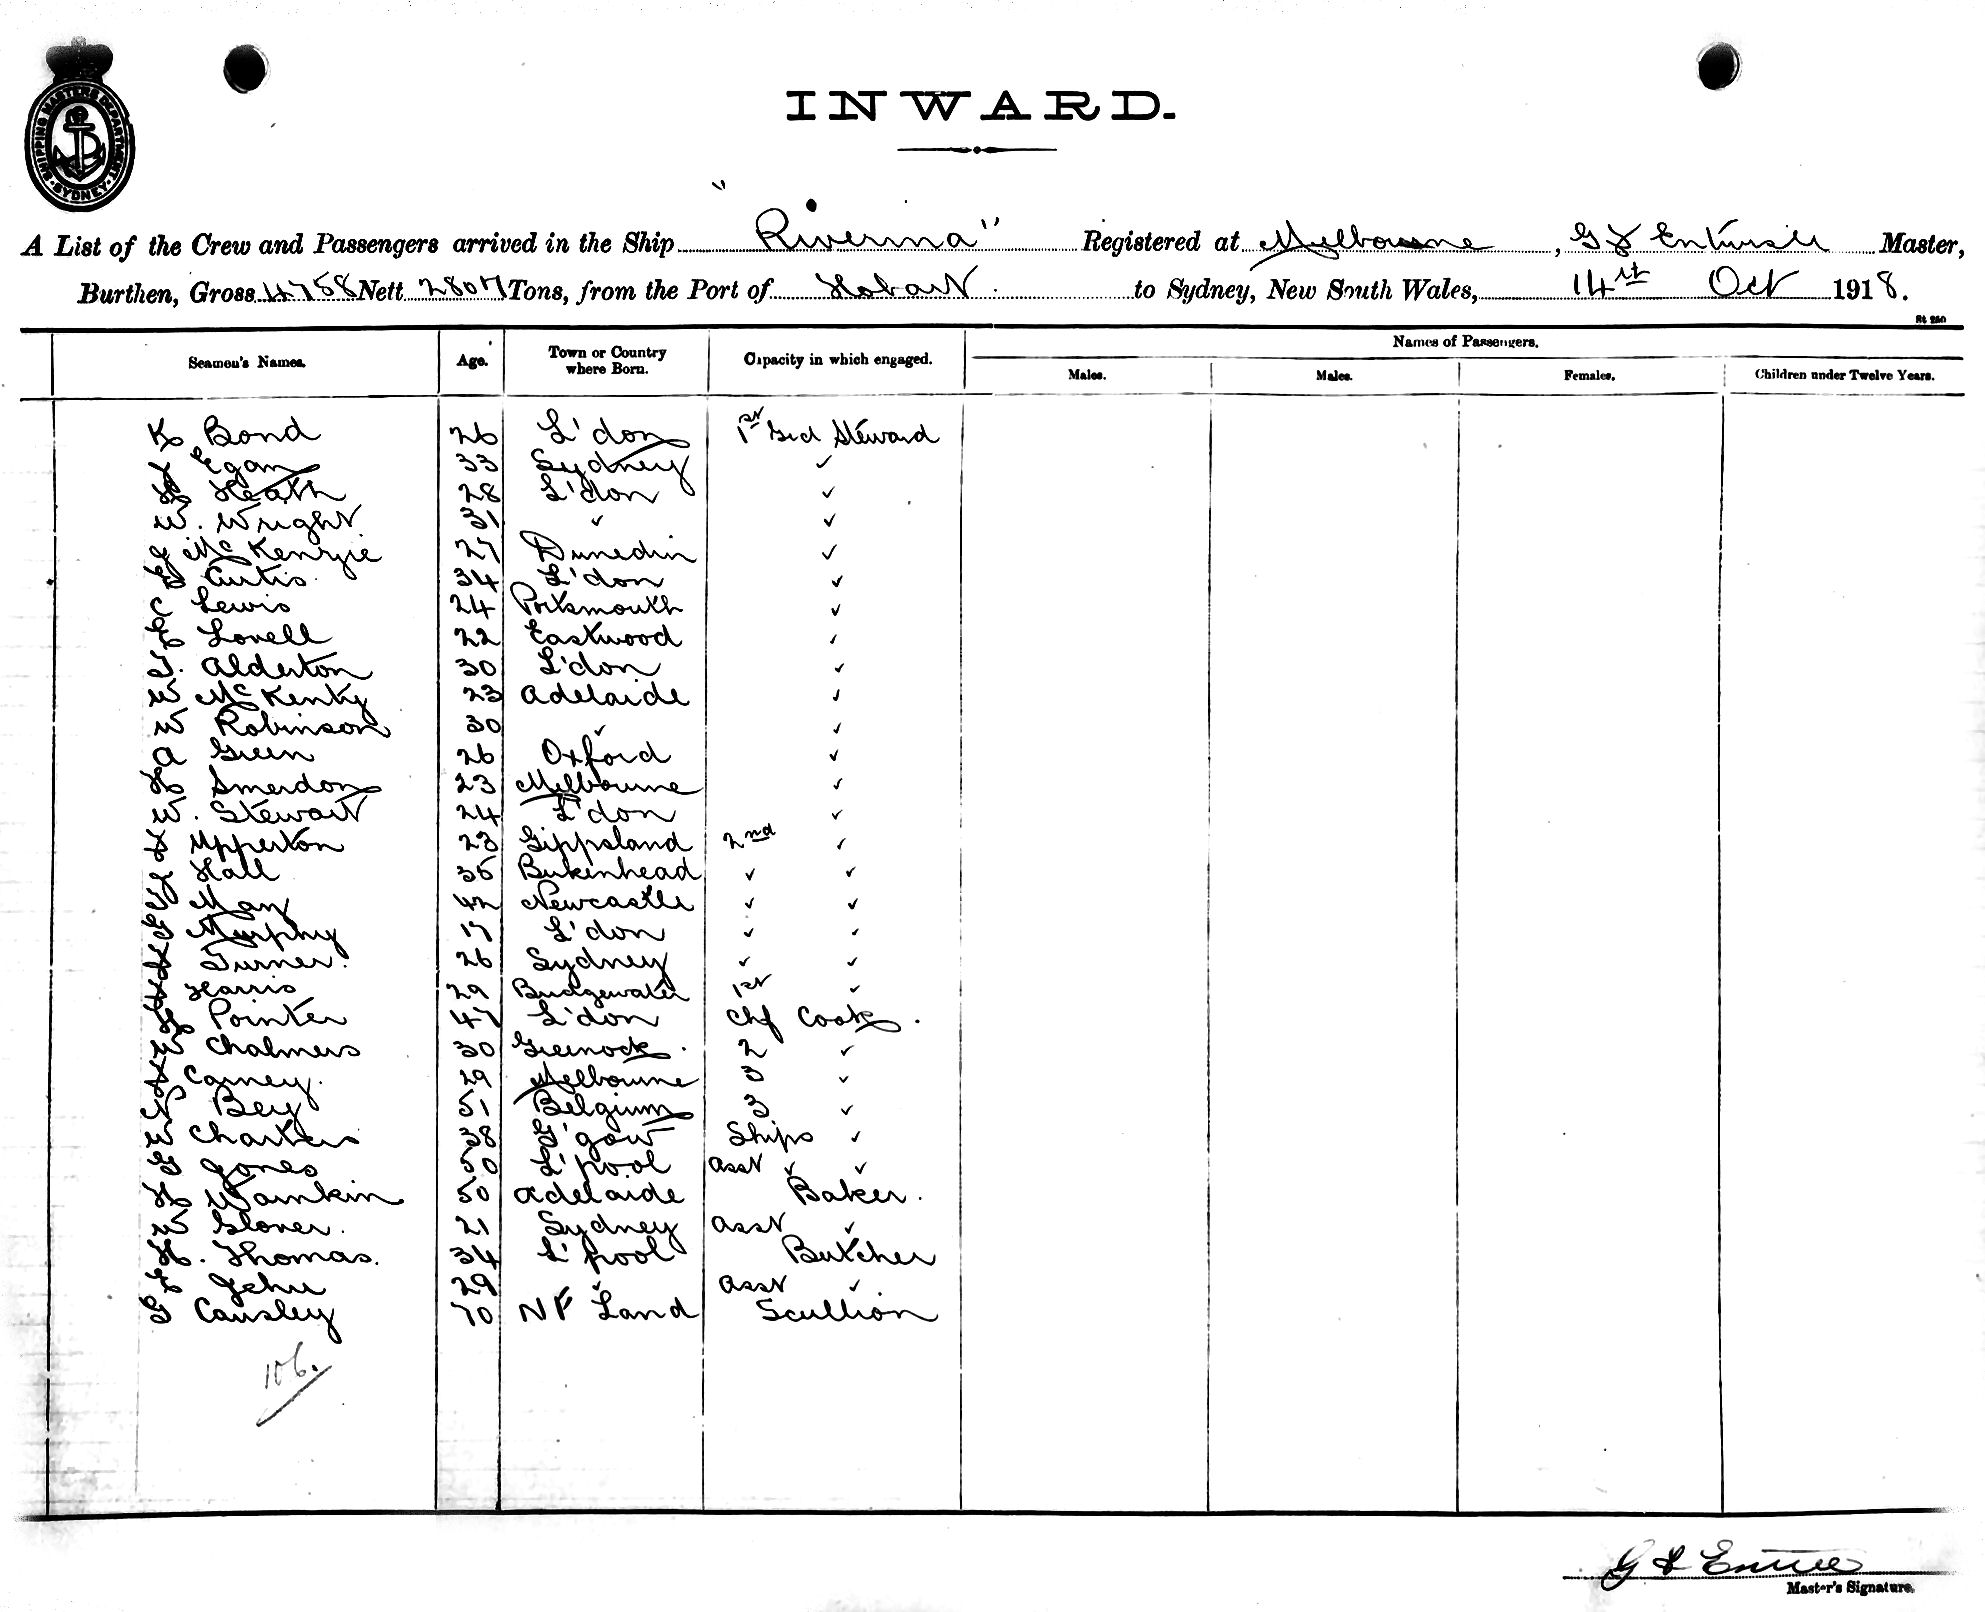 SHIPPING MASTERS DEPARTMENT SYDNEY
INWARD.
A List of the Crew and Passengers arrived in the Ship "Riverina" Registered at Melbourne, Master,
Burthen, Gross 4758 Nett 2807 Tons, from the Port of Hobart. to Sydney, New South Wales, 14th Oct 1918.
St 280
Seamen's Names. Age. Town or Country where Born. Capacity in which engaged. Names of Passengers.
Males. Males. Females. Children under Twelve Years.
Bond 26 L'don 1st Grd Steward
Egan 33 Sydney ✓
Heath 28 L'don ✓
W. Wright 31 ✓ ✓
J McKenzie 27 Dunedin ✓
Curtis. 34 L'don ✓
C Lewis 24 Portsmouth ✓
E Lovell 22 Eastwood ✓
T. Alderton 30 L'don ✓
W McKenky 23 Adelaide ✓
W Robinson 30 ✓ ✓
A Green 26 Oxford ✓
H Smerdon 23 Melbourne ✓
W. Stewart 24 L'don ✓
Upperton 23 Gippsland 2nd ✓
J Hall 35 Birkenhead ✓ ✓
T May 42 Newcastle ✓ ✓
G Murphy 17 L'don ✓ ✓
Turner. 26 Sydney ✓ ✓
Harris 29 Bridgewater 1st ✓
Pointer 47 L'don Chf Cook.
W Chalmers 30 Greenock. 2 ✓
Carney. 29 Melbourne 3 ✓
N Bey 51 Belgium 3 ✓
W Charters 38 G'gow Ships ✓
G Jones 50 L'pool Asst ✓ ✓
H Wamkin 50 Adelaide Baker.
W Glover. 21 Sydney Asst ✓
H. Thomas. 34 L'pool Butcher
E Jehu 29 ✓ Asst ✓
G Causley 70 NF Land Scullion
106.
Master's Signature.